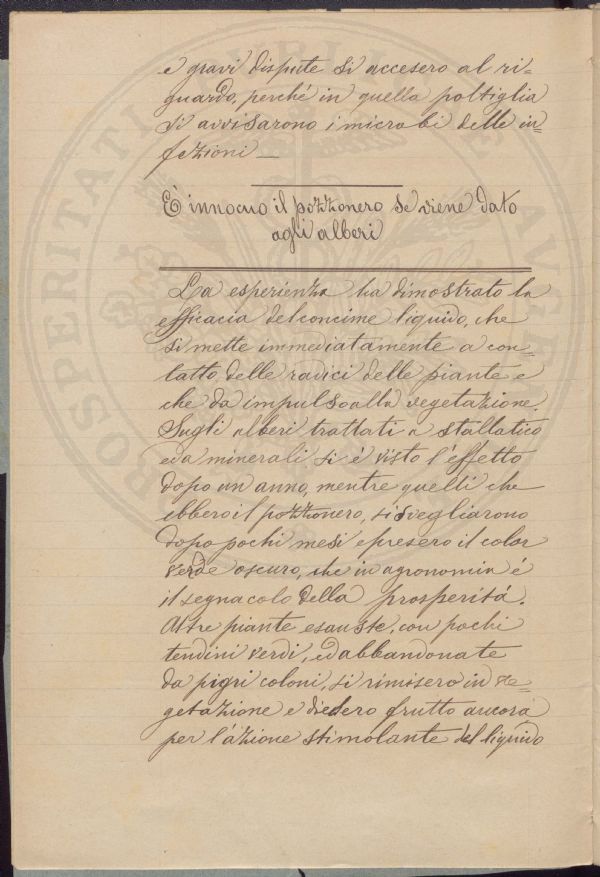 e gravi dispute si accesero al ri=
guardo, perché in quella poltiglia
si avvisarono i microbi delle in=
fezioni —
È innocuo il pozzonero se viene dato
agli alberi
La esperienza ha dimostrato la
efficacia del concime liquido, che
si mette immediatamente a con=
tatto delle radici delle piante e
che da impulso alla vegetazione.
Sugli alberi trattati a stallatico
e da minerali si è visto l'effetto
dopo un anno, mentre quelli che
ebbero il pozzonero, si svegliarono
dopo pochi mesi e presero il color
verde oscuro, che in agronomia é
il segnacolo della prosperitá.
Altre piante esauste, con pochi
tendini verdi, ed abbandonate
da pigri coloni, si rimisero in ve=
getazione e diedero frutto ancora
per l'azione stimolante del liquido